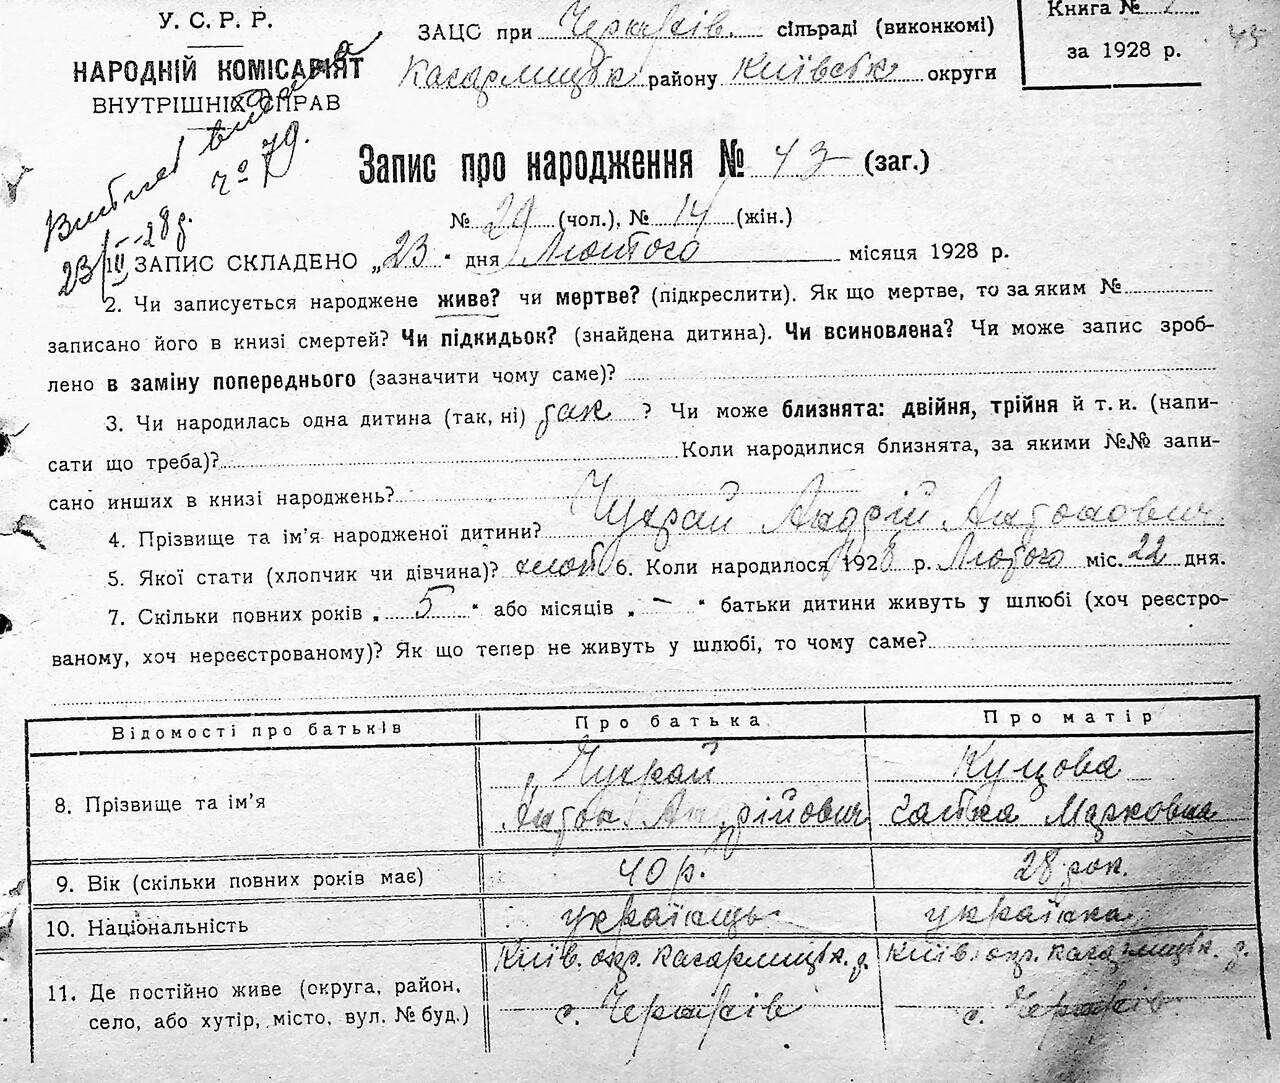 У. С. Р. Р.
НАРОДНІЙ КОМІСАРІЯТ
ВНУТРІШНІХ СПРАВ
ЗАЦС при сільраді (виконкомі)
Кагарлицьк району Київськ округи
Книга №
за 1928 р.
45
видана
№ 79.
23/III-28р.
Запис про народження № 43 (заг.)
№ 29 (чол.), № 14 (жін.)
1. ЗАПИС СКЛАДЕНО „23“ дня Лютого місяця 1928 р.
2. Чи записується народжене живе? чи мертве? (підкреслити). Як що мертве, то за яким №
записано його в книзі смертей? Чи підкидьок? (знайдена дитина). Чи всиновлена? Чи може запис зроб-
лено в заміну попереднього (зазначити чому саме)?
3. Чи народилась одна дитина (так, ні) так ? Чи може близнята: двійня, трійня й т. и. (напи-
сати що треба)? Коли народилися близнята, за якими №№ запи-
сано инших в книзі народжень?
4. Прізвище та ім’я народженої дитини? Чухрай Андрій Антонович.
5. Якої стати (хлопчик чи дівчина)? хлоп 6. Коли народилося 1928 р. Лютого міс. 22 дня.
7. Скільки повних років „ 5 “ або місяців „ – “ батьки дитини живуть у шлюбі (хоч реєстро-
ваному, хоч нереєстрованому)? Як що тепер не живуть у шлюбі, то чому саме?
Відомості про батьків Про батька Про матір
8. Прізвище та ім’я Чухрай Антон Андрійович Куцова Марковна
9. Вік (скільки повних років має) 40 р. 28 рок.
10. Національність українець українка
11. Де постійно живе (округа, район, Київ. окр. Кагарлицьк. р. Київ. окр. Кагарлицьк. р.
село, або хутір, місто, вул. № буд.) с. с.